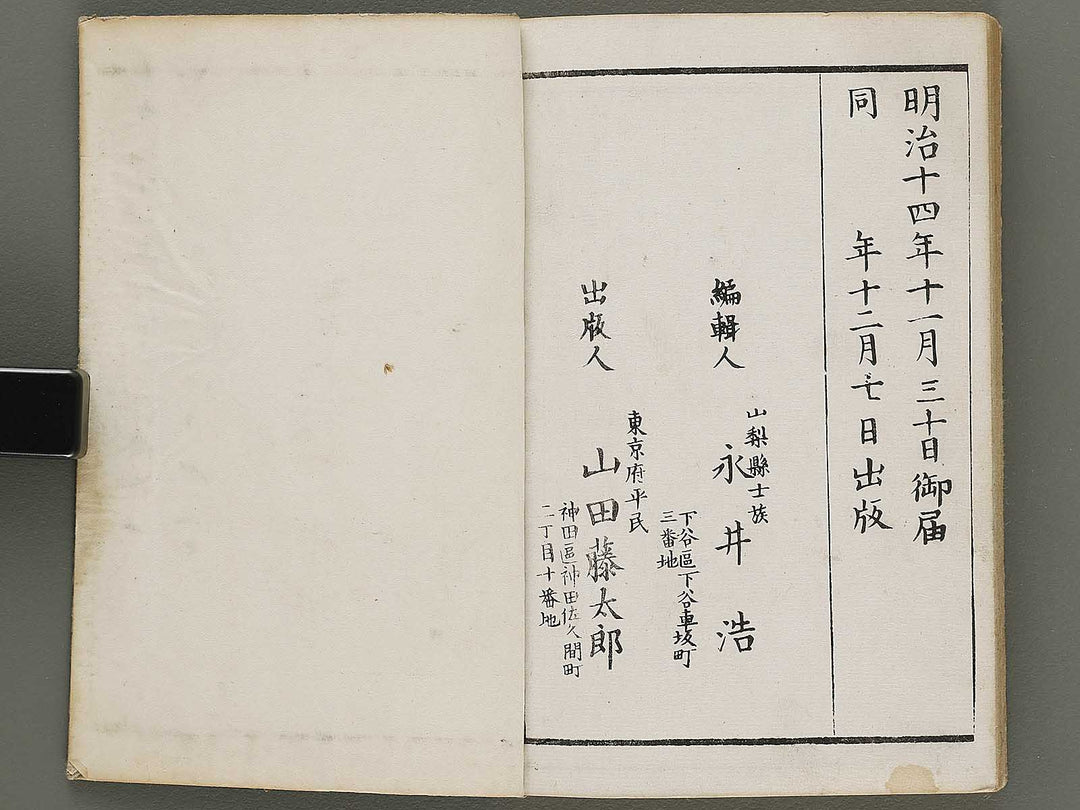 明治十四年十一月三十日御届
同年十二月七日出版
編輯人
山梨縣士族
永井浩
下谷區下谷車坂町
三番地
出版人
東京府平民
山田藤太郎
神田區神田佐久間町
二丁目十番地